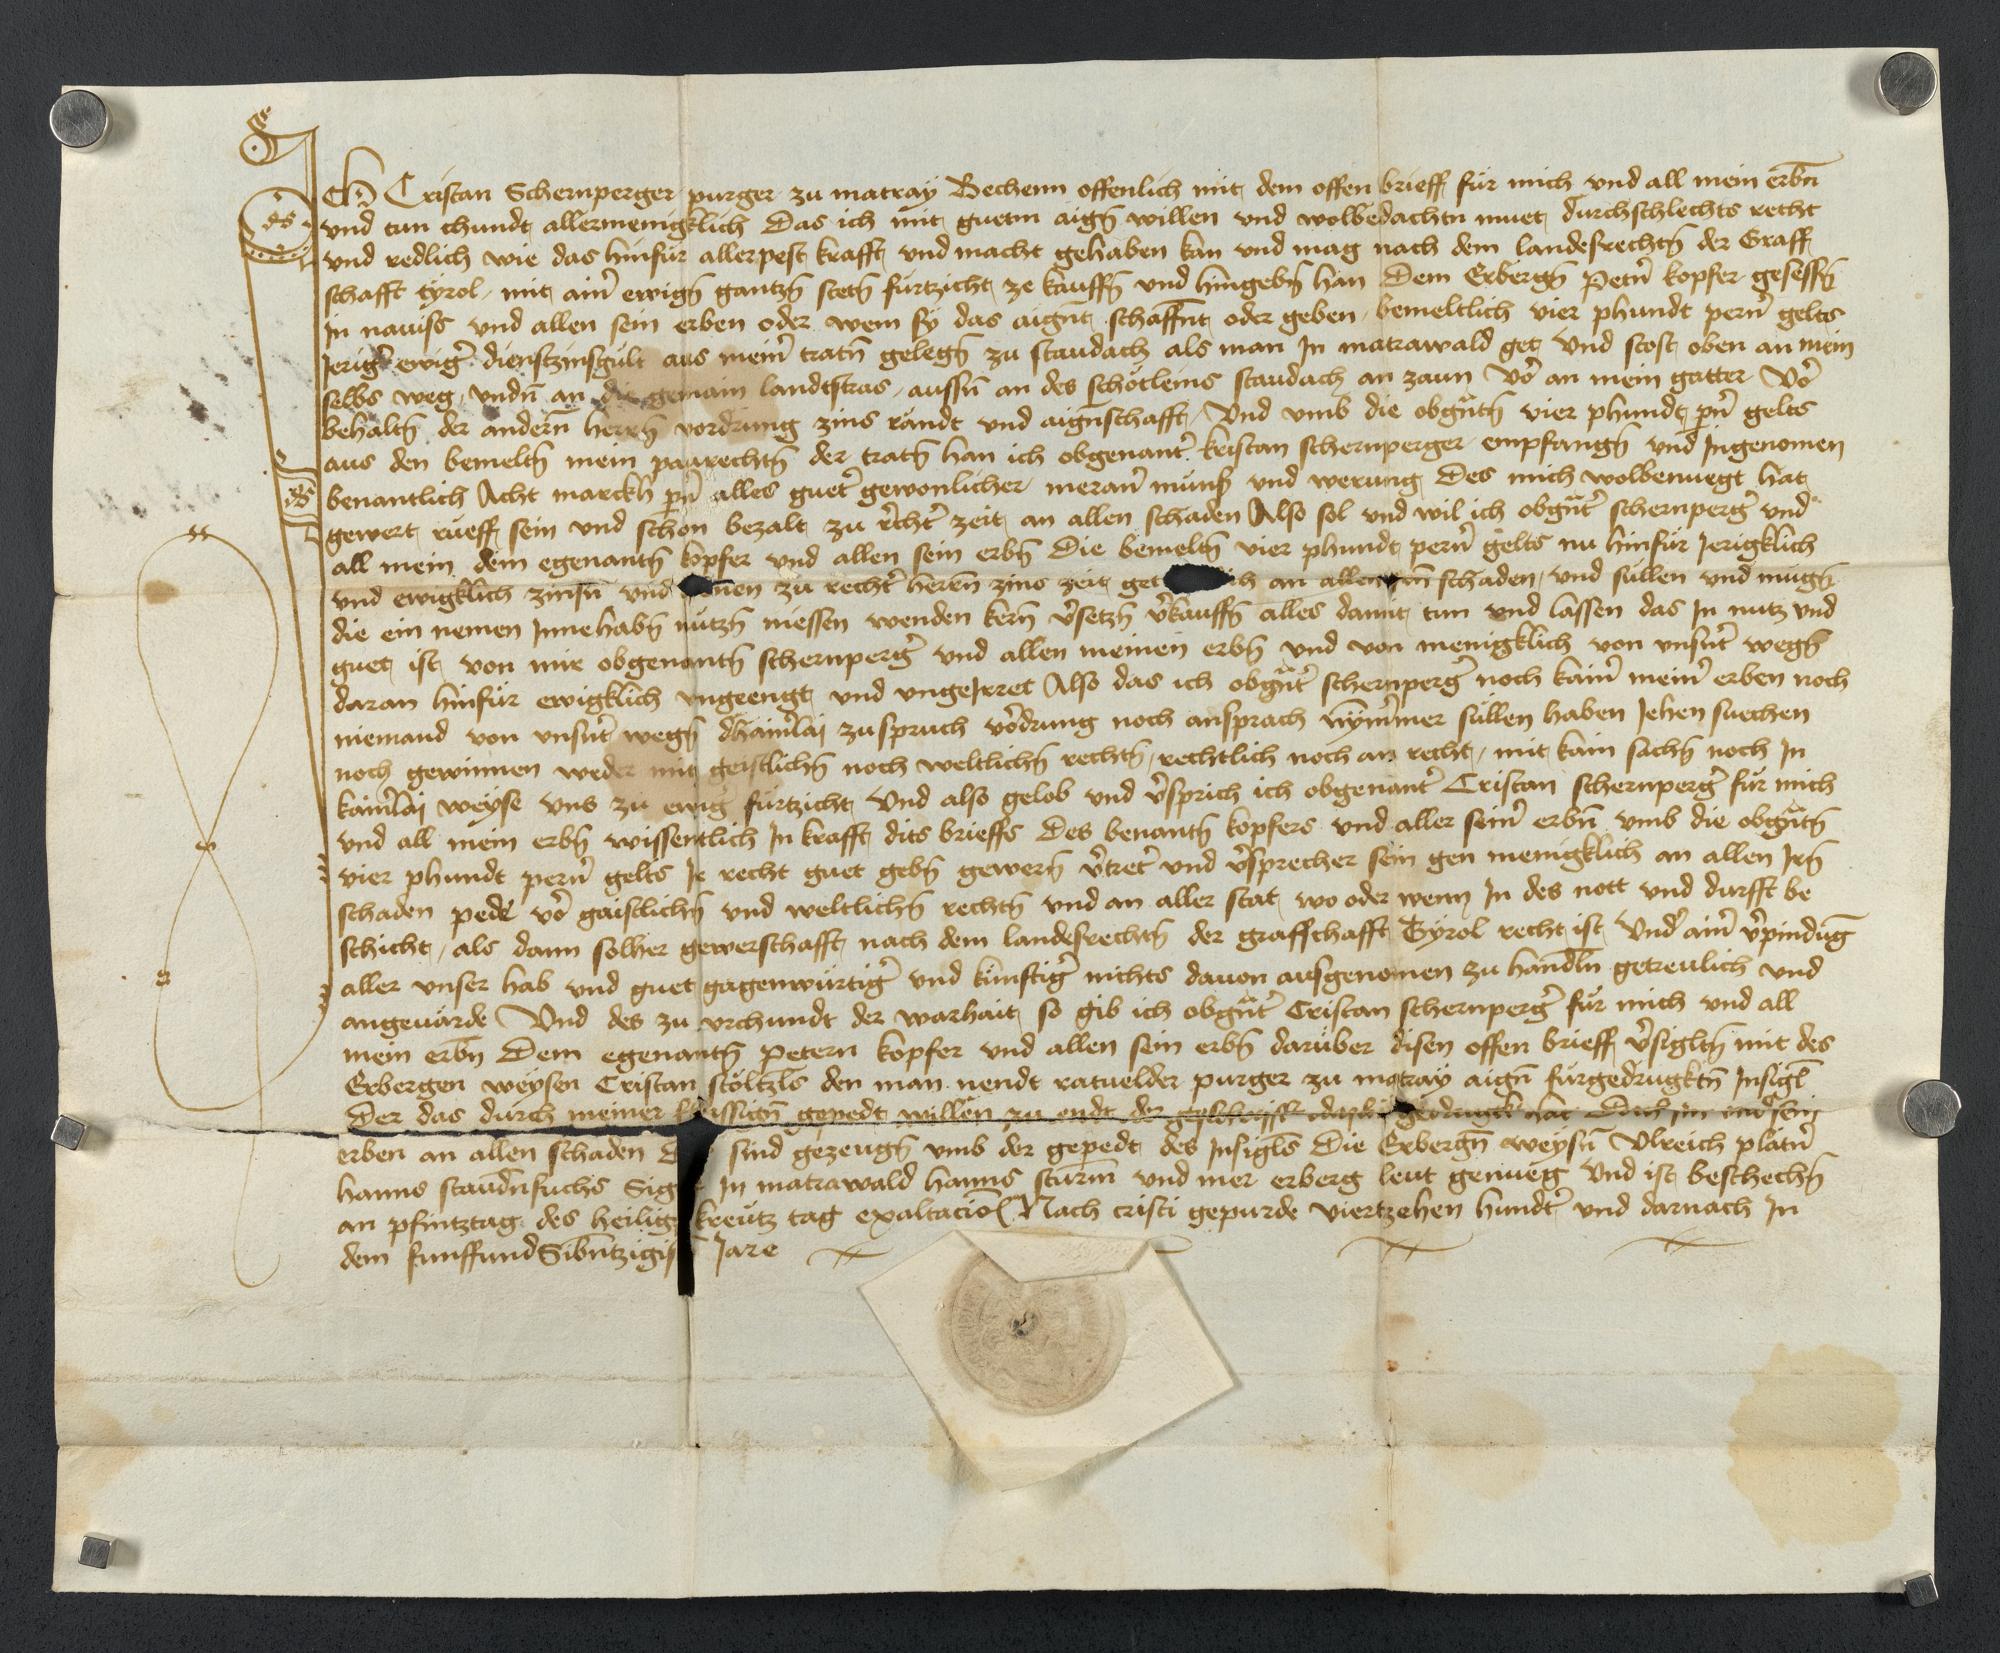 Ich Cristan Schernperger purger zu matray Bechenn offenlich mit dem offen brieff für mich vnd all mein erbn̄
vnd tun chundt allermenigklich Das ich mit guetm aign̄ willen vnd wolbedachtn muet durchschlechts recht
vnd redlich wie das hinfür allerpest krafft vnd macht gehaben kan vnd mag nach dem landesrechtn̄ der Graff
schafft tyrol mit aim̄ ewign̄ gantzn̄ stetn̄ fürtzicht ze kauffn̄ vnd hingebn̄ han Dem Erbergn̄ Petn̄ kopfer gesessn̄
In nauiss vnd allen sein erben oder wem sy das aign̄t schaffn̄t oder geben bemeltlich vier phundt pern̄ gelts
Jeriḡ ewiḡ dienstzinsgült aus meim̄ tratn̄ gelegn̄ zu staudach als man In matrawald get Vnd stost oben an mein
selbs weg vndn̄ an die gemain landtstras aussn̄ an des schötleins staudach an zaun Vor̄ an mein gatter Vor̄
behaltn̄ der andern̄ herrn̄ vordrung zins rändt vnd aignschafft Vnd vmb die obgn̄tn̄ vier phundt pn̄ gelts
aus den bemeltn̄ mein paurechtn̄ der tratn̄ han ich obgenant̄ kristan schernperger empfangn̄ vnd Ingenomen
benantlich Acht marckh pn̄ alles guet̄ gewonlicher meran̄ münss vnd werung Des mich wolbenuegt hat
gewert rueff sein vnd schon bezalt zu rec̄ht̄ zeit an allen schaden Also sol vnd wil ich obgn̄t̄ schernperḡ vnd
all mein dem egenantn̄ kopfer vnd allen sein erbn̄ Die bemeltn̄ vier phundt pern̄ gelts nu hinfür Jerigklich
vnd ewigklich zinsn̄ vnd zu recht̄ herrn̄ zins zeit an allen schaden vnd süllen vnd mugn̄
die ein nemen Innehabn̄ nützn̄ niessen wenden kern̄ v̄setzn̄ v̄kauffn̄ alles damit tun vnd lassen das In nutz vnd
guet ist von mir obgenantn̄ schernperḡ vnd allen meinen erbn̄ vnd von menigklich von vnsn̄t̄ wegn̄
daran hinfür ewigklich vngeengt vnd vngeJrret Also das ich obgn̄t̄ schernperḡ noch kaim̄ meim̄ erben noch
niemand von vnsn̄t̄ wegn̄ dhaim̄lai zuspruch vor̄drung noch ansprach nȳm̄mer süllen haben Jehen suechen
noch gewinnen weder mit geistlichn̄ noch weltlichn̄ rechtn̄ rechtlich noch an recht mit kain sachn̄ noch In
kaim̄lai weyse vns zu ewiḡ fürtzicht Vnd also gelob vnd v̄sprich ich obgenant̄ Cristan schernperḡ für mich
vnd all mein erbn̄ wissentlich In krafft dits brieffs Des benantn̄ kopfers vnd aller seim̄ erbn̄ vmb die obgn̄tn̄
vier phundt pern̄ gelts Jr recht guet gebn̄ gewern̄ v̄tret̄ vnd v̄sprecher sein gen menigklich an allen Jrn̄
schaden pede vor̄ gaistlichn̄ vnd weltlichn̄ rechtn̄ vnd an aller stat wo oder wenn In des nott vnd durfft be
schicht als dann solher gewerschafft nach dem landesrechtn̄ der graffschafft Tyrol recht ist Vnd̄ aim̄ v̄pindūg
aller vnser hab vnd guet gagenwürtiḡ vnd künftiḡ nichts dauon ausgenomen zu handln̄ getreulich vnd
angeuärde Vnd des zu vrchundt der warhait so gib ich obgn̄t̄ Cristan schernperḡ für mich vnd all
mein erbn̄ Dem egenantn̄ Petern kopfer vnd allen sein erbn̄ darüber disen offen brieff v̄sigltn̄ mit des
Erbergen weysen Cristan stöltzls den man nendt ratuelder purger zu matray aign̄ fürgedrugktn̄ Insigl̄
Der das durch meiner gepedt willen zu endt der geschrifft gedrugkt hat Doch Im vnd sein
erben an allen schaden sind gezeugn̄ vmb der gepedt des Insigls Die Erbergn̄ weysn̄ Vlreich platn̄
hanns staudn̄fuchs In matrawald hanns sturm̄ vnd mer erberg leut genueg Vnd ist beschechn̄
an pfintztag des heilig kreütz tag exaltacio Nach cristi gepurde viertzehen hundt̄ vnd darnach In
dem funffundSibn̄tzigis Jare